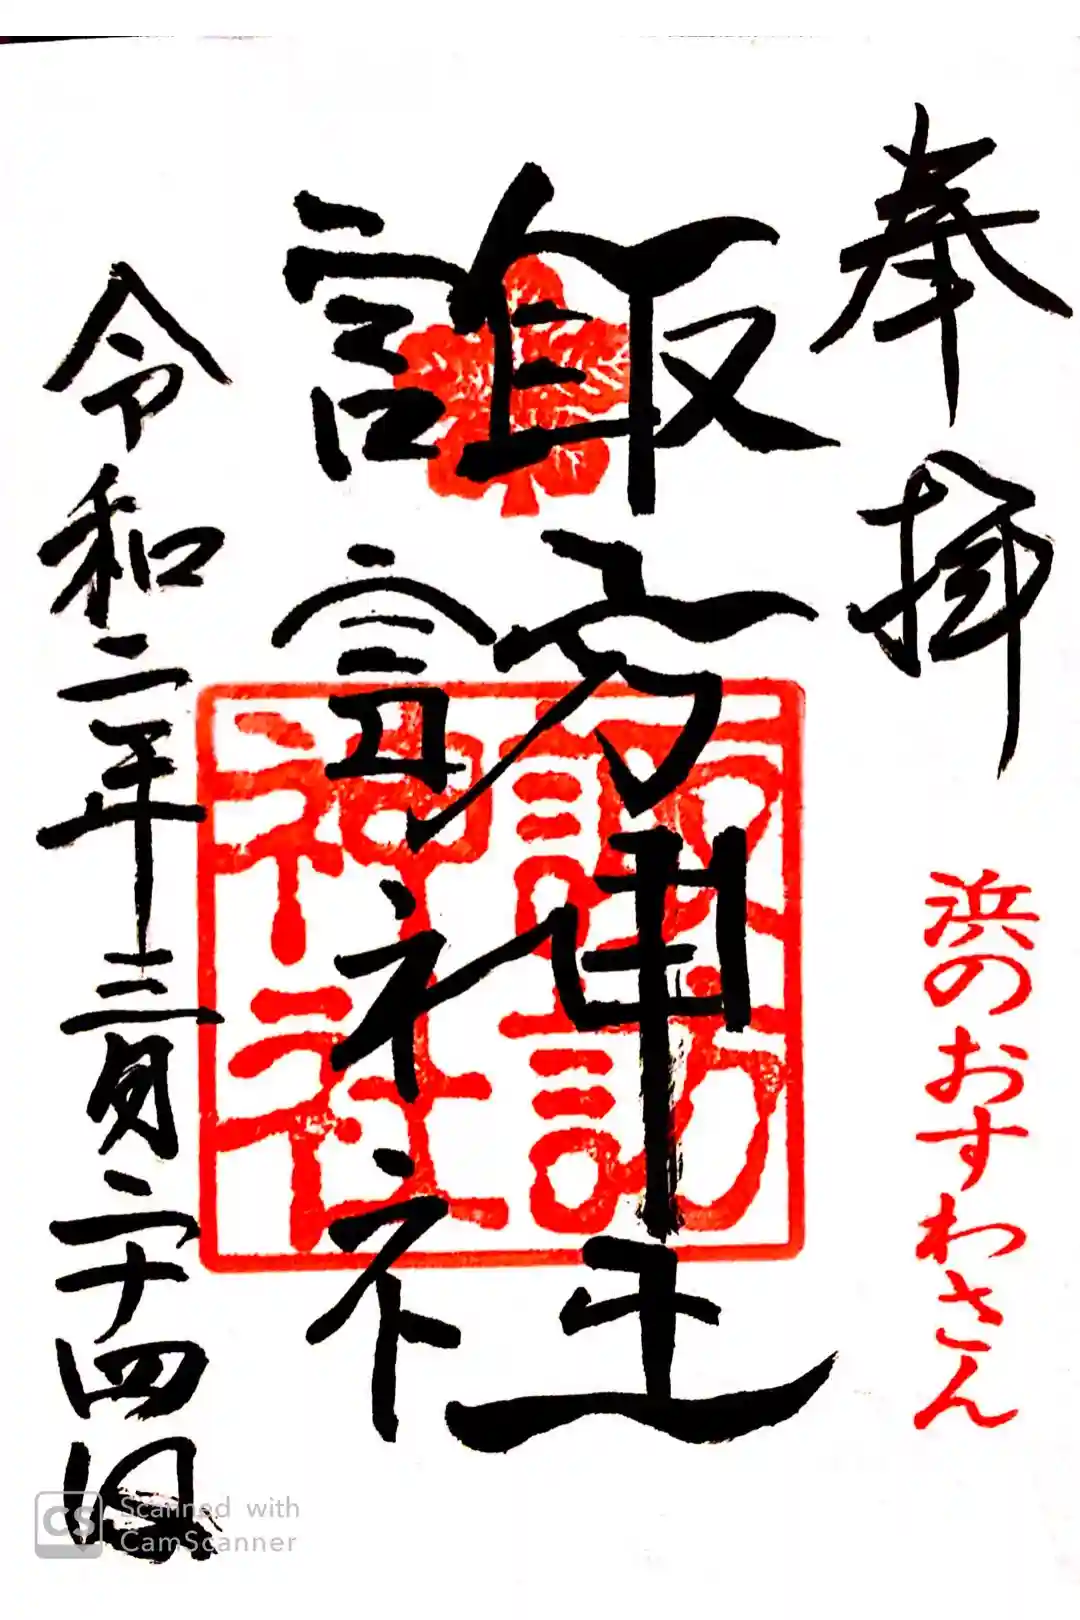 奉拝
浜のおすわさん
諏訪神社
諏訪
神社
令和二年三月二十四日
CS Scanned with
CamScanner